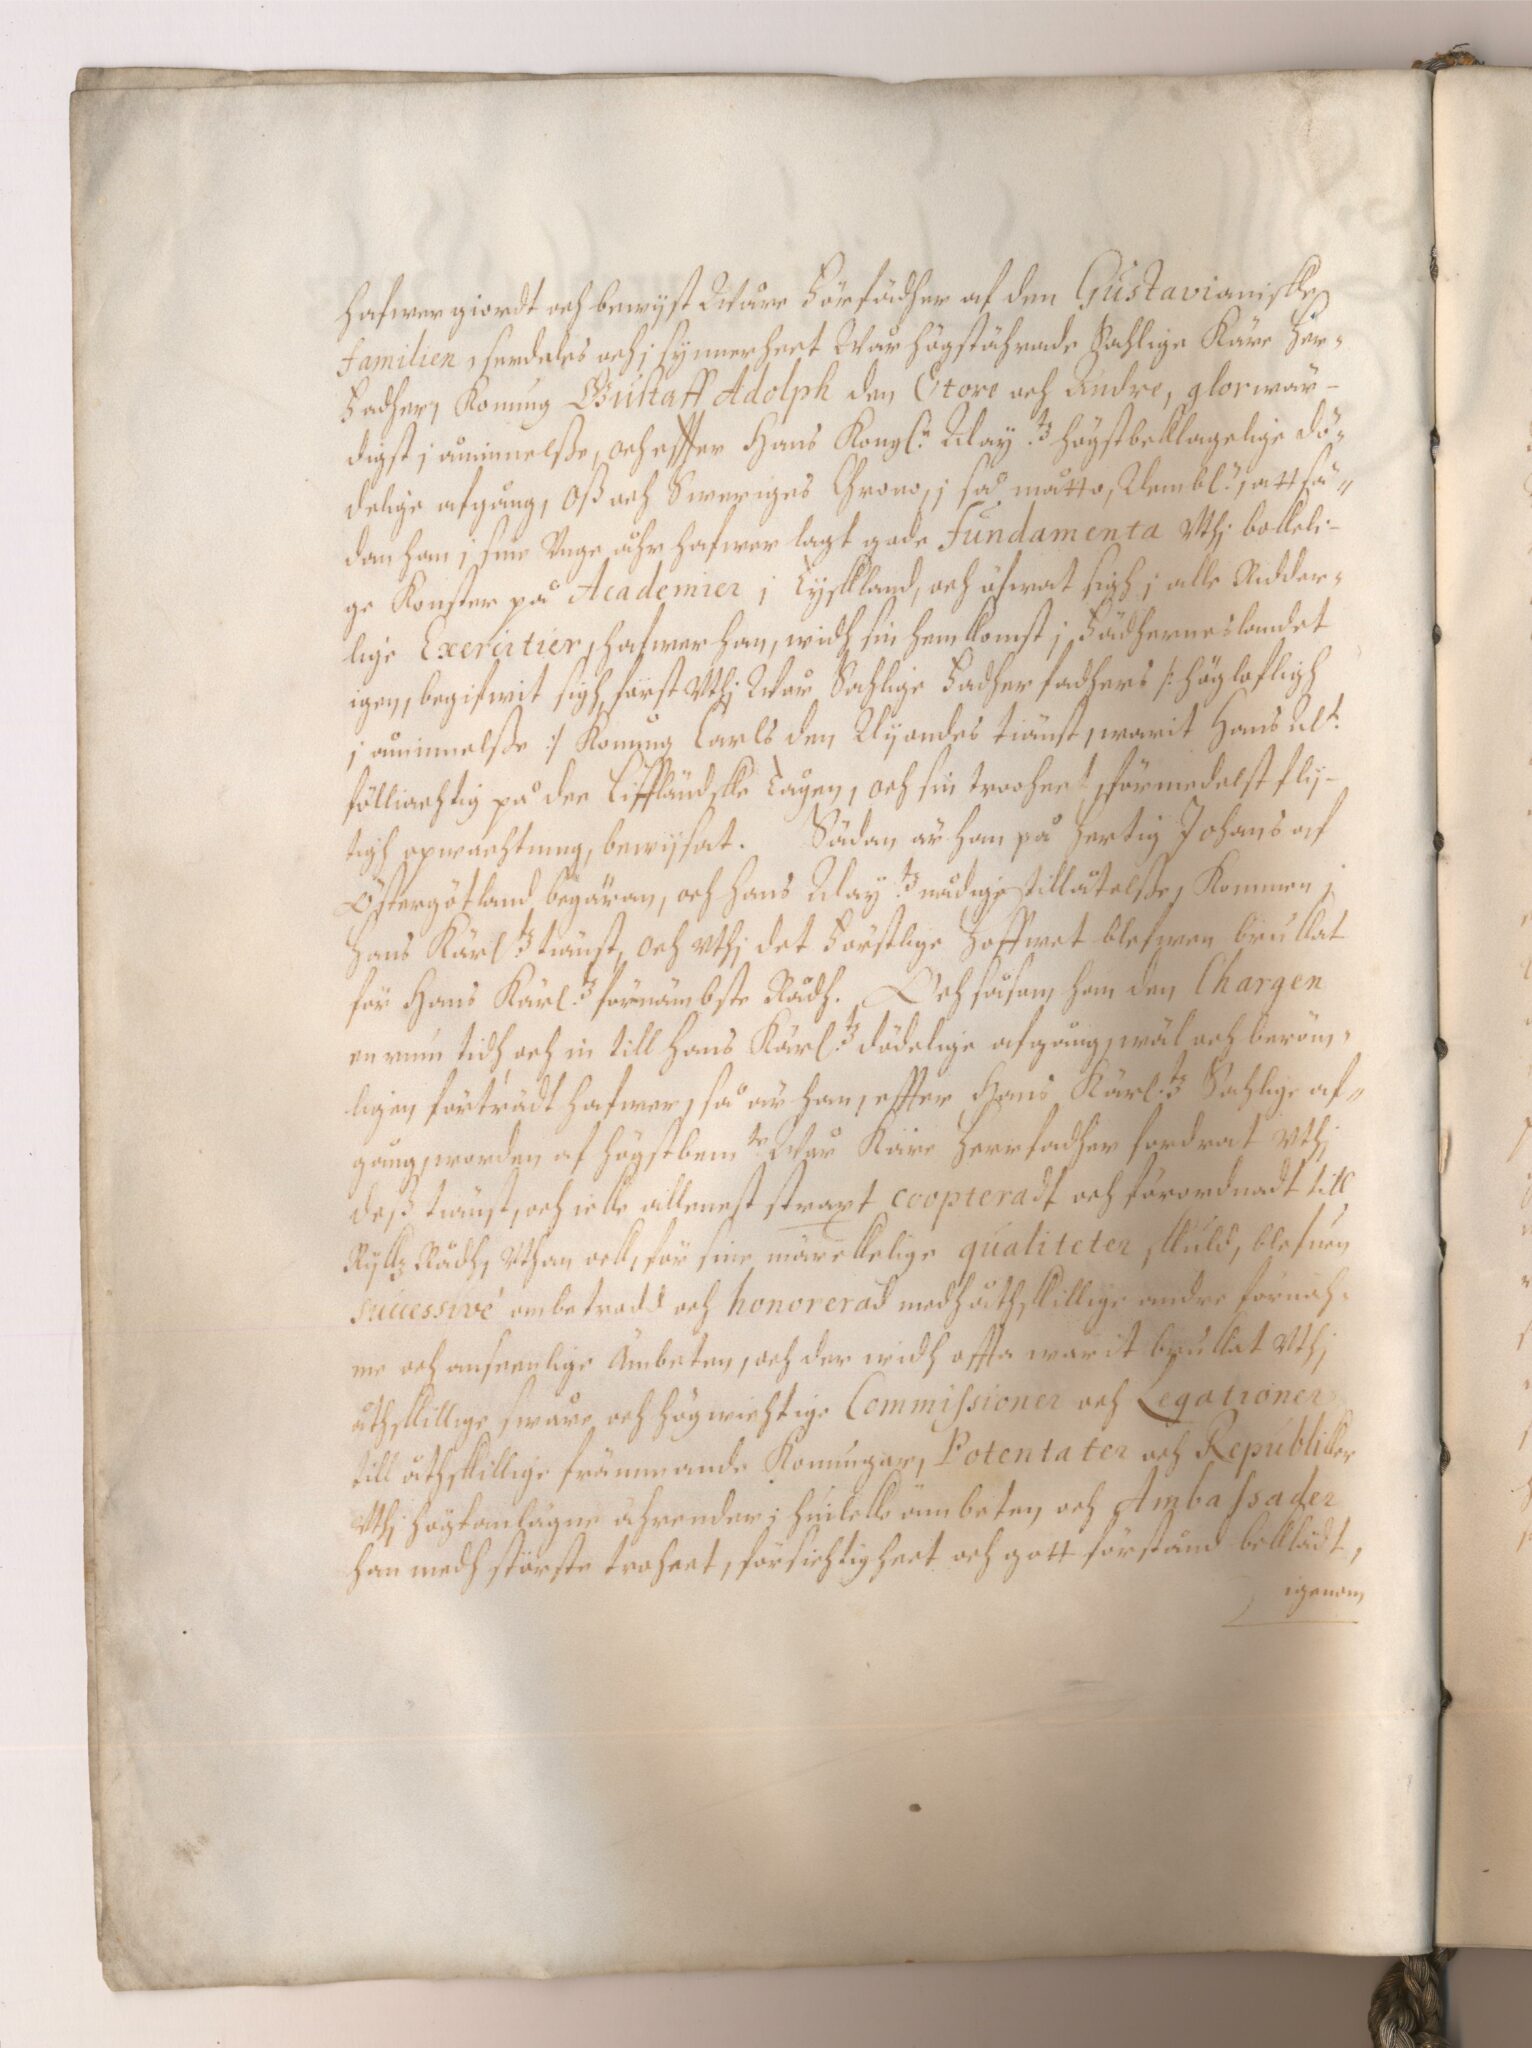 hafwer giordt och bewyst Wåre Förfädher af den Gustavianiske
familien, serdeles och i synnerheet Wår högstährade Sahlige Käre Her-
Fadher, Konung Gustaff Adolph den Store och Andre, glorwär-
digst i åminnelsse, och effter Hans Kongl. May:tz högstbeklagelige dö-
delige afgång, Oss och Sweriges Chrono, i så måtto, Nembl. att så-
dan han i sine Unge åhr hafwer lagt gode Fundamenta Vthi bokeli-
ge Konster på Academier i Tyskland, och öfwat sigh i alle Ridder-
lige Exercitier, hafwer han, widh sin hemkomst i Fädherneslandet
igen, begifwit sigh först Vthi Wår Sahlige Fadherfadhers /: höglofligh
i åminnelsse :/ Konung Carls den Nyondes tiänst, warit Hans M:t
fölliachtig på dee Lifflándske Tågen, och sin trooheet förmedelst flij-
tigh opwachtning, bewijsat. Sädan är han på Hertig Johans af
Östergötland begäran, och Hans May:tz nådige tillåtelsse, Kommen i
Hans Kärl:tz tiänst, och vthi det Förstlige Hoffwet blefwen brukat
för Hans Kärl:tz förnämbste Rådh. Och såsom han den Chargen
en rum tidh och in till Hans Kärl:tz dödelige afgång, wäl och beröm-
ligen förträdt hafwer, så är han, effter Hans Kärl:tz Sahlige af-
gång, worden af högstbem:te Wår Käre Herrfadher fordrat Vthi
dess tiänst, och icke allenest straxt coopteradt och förordnadt till
Rykz Rådh, Vthan ock, för sine märckelige qualiteter skuld, blefuen
successivè ombetrodd och honorerad medh åthskillige andre förnäh-
me och anseenlige Ämbeten, och der widh offta warit brukat Vthi
åthskillige sware och högwichtige Commissioner och Legationer
till åthskillige främmande Konungar, Potentater och Republiker
Vthi högtanlägne ährender, i huilcke ämbeten och Ambassader
han medh störste troheet, försichtigheet och gott förstånd beklädt,
igenom